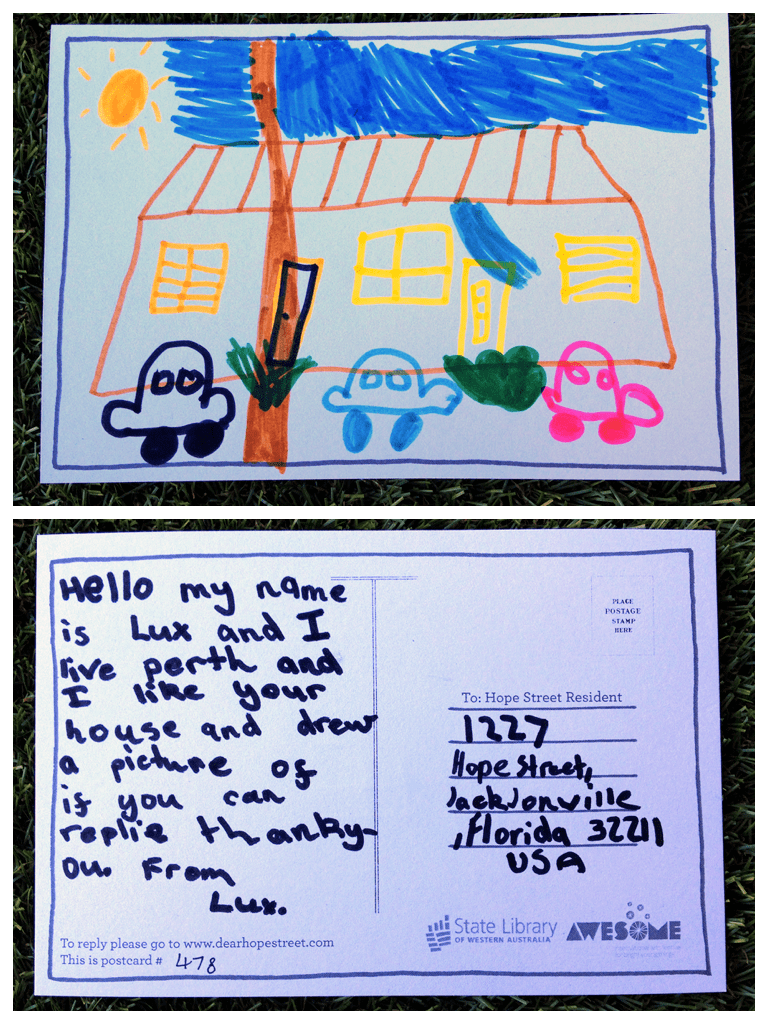 Hello my name
is Lux and I
live perth and
I like your
house and drew
a picture of
if you can
replie thanky-
ou. From
Lux.
To reply please go to www.dearhopestreet.com
This is postcard # 478
PLACE
POSTAGE
STAMP
HERE
To: Hope Street Resident
1227
Hope Street,
Jacksonville
,Florida 32211
USA
State Library
OF WESTERN AUSTRALIA
AWESOME